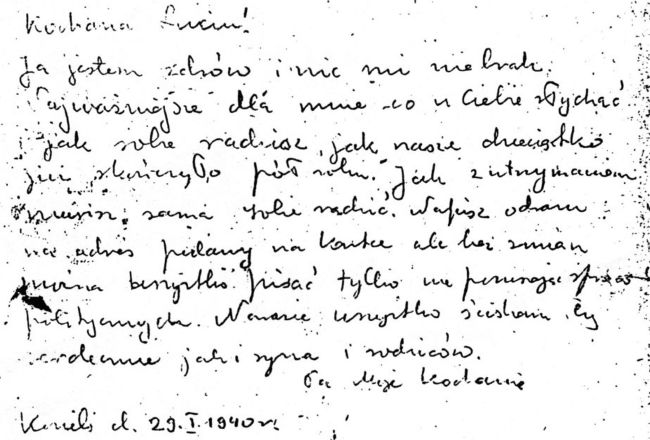 Kochana Luciu!
Ja jestem zdrów i nic mi nie brak.
Najważniejsze dla mnie co u Ciebie słychać
i jak sobie radzisz, jak nasze dzieciątko
już skończyło pół roku. Jak z utrzymaniem
musisz sama sobie radzić. Napisz odrazu
na adres podany na kartce ale bez zmian
można wszystko pisać tylko nie poruszając spraw
politycznych. Narazie wszystko ściskam Cię
serdecznie jak i syna i rodziców.
Moje Kochanie
d. 29.I.1940 r.